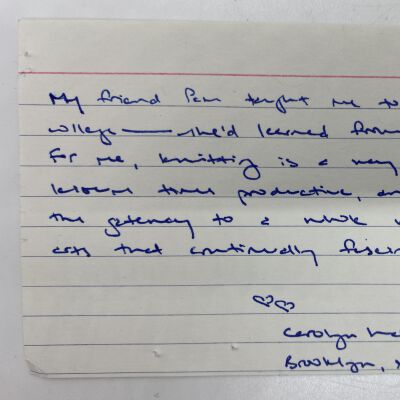 My friend Pam taught me to
college — she'd learned from
For me, knitting is a way
leisure time productive, an
the gateway to a whole w
arts that continually fascin
♡♡
Carolyn
Brooklyn,